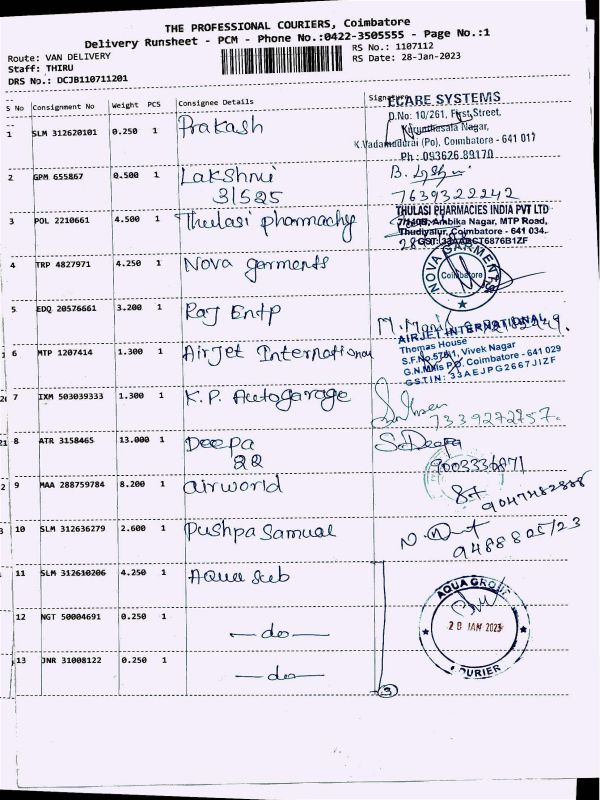 THE PROFESSIONAL COURIERS, Coimbatore
Delivery Runsheet - PCM - Phone No.:0422-3505555 - Page No.:1
Route: VAN DELIVERY
Staff: THIRU
DRS No.: DCJB110711201
RS No.: 1107112
RS Date: 28-Jan-2023
S No Consignment No Weight PCS Consignee Details Signature
1 SLM 312620101 0.250 1 Prakash
ECARE SYSTEMS
D.No: 10/261, First Street,
Kurinthasala Nagar,
K.Vadamadurai (Po), Coimbatore - 641 017
Ph : 093626 89170
2 GPM 655867 0.500 1 Lakshmi
31525
7639322242
3 POL 2210661 4.500 1 Thulasi pharmachy
THULASI PHARMACIES INDIA PVT LTD
Ambika Nagar, MTP Road,
Thudiyalur, Coimbatore - 641 034.
4 TRP 4827971 4.250 1 Nova garments
NOVA GARMENTS
Coimbatore
5 EDQ 20576661 3.200 1 Raj Entp
6 MTP 1207414 1.300 1 AirJet International
AIRJET INTERNATIONAL
Thomas House
Vivek Nagar
Coimbatore - 641 029
GSTIN: 33AEJPG2667J1ZF
7 IXM 503039333 1.300 1 K.P. Autogarage
7339272757.
8 ATR 3158465 13.000 1 Deepa
22
S. Deepa
9003336871
9 MAA 288759784 8.200 1 airworld
10 SLM 312636279 2.600 1 Pushpa Samual
11 SLM 312610206 4.250 1 Aqua sub
AQUA GROUP
28 JAN 2023
COURIER
12 NGT 50004691 0.250 1 — do —
13 JNR 31008122 0.250 1 — do —
3